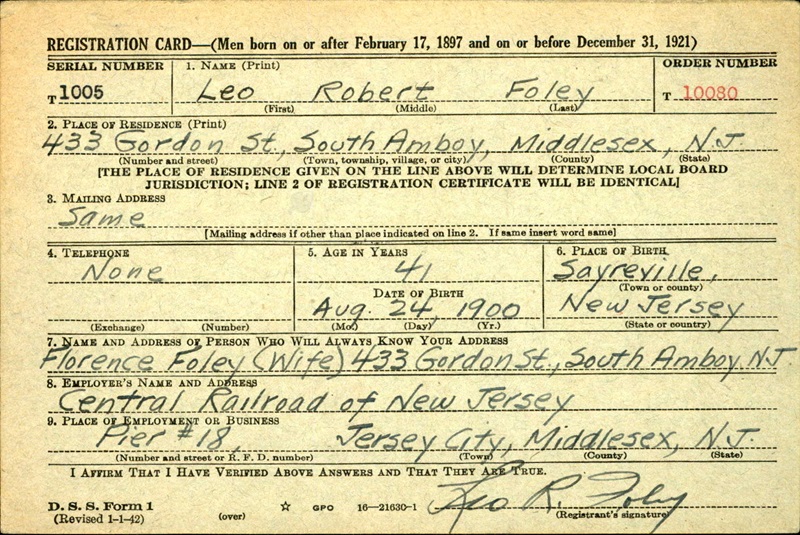 REGISTRATION CARD—(Men born on or after February 17, 1897 and on or before December 31, 1921)
SERIAL NUMBER 1. NAME (Print) ORDER NUMBER
T 1005 Leo Robert Foley T 10080
(First) (Middle) (Last)
2. PLACE OF RESIDENCE (Print)
433 Gordon St., South Amboy, Middlesex, N.J.
(Number and street) (Town, township, village, or city) (County) (State)
[THE PLACE OF RESIDENCE GIVEN ON THE LINE ABOVE WILL DETERMINE LOCAL BOARD
JURISDICTION; LINE 2 OF REGISTRATION CERTIFICATE WILL BE IDENTICAL]
3. MAILING ADDRESS
Same
[Mailing address if other than place indicated on line 2. If same insert word same]
4. TELEPHONE 5. AGE IN YEARS 6. PLACE OF BIRTH
None 41 Sayreville,
DATE OF BIRTH (Town or county)
Aug. 24, 1900 New Jersey
(Exchange) (Number) (Mo.) (Day) (Yr.) (State or country)
7. NAME AND ADDRESS OF PERSON WHO WILL ALWAYS KNOW YOUR ADDRESS
Florence Foley (Wife) 433 Gordon St., South Amboy, N.J.
8. EMPLOYER'S NAME AND ADDRESS
Central Railroad of New Jersey
9. PLACE OF EMPLOYMENT OR BUSINESS
Pier #18, Jersey City, Middlesex, N.J.
(Number and street or R. F. D. number) (Town) (County) (State)
I AFFIRM THAT I HAVE VERIFIED ABOVE ANSWERS AND THAT THEY ARE TRUE.
Leo R. Foley
D. S. S. Form 1
(Revised 1-1-42) (over) ☆ GPO 16—21630-1 (Registrant's signature)